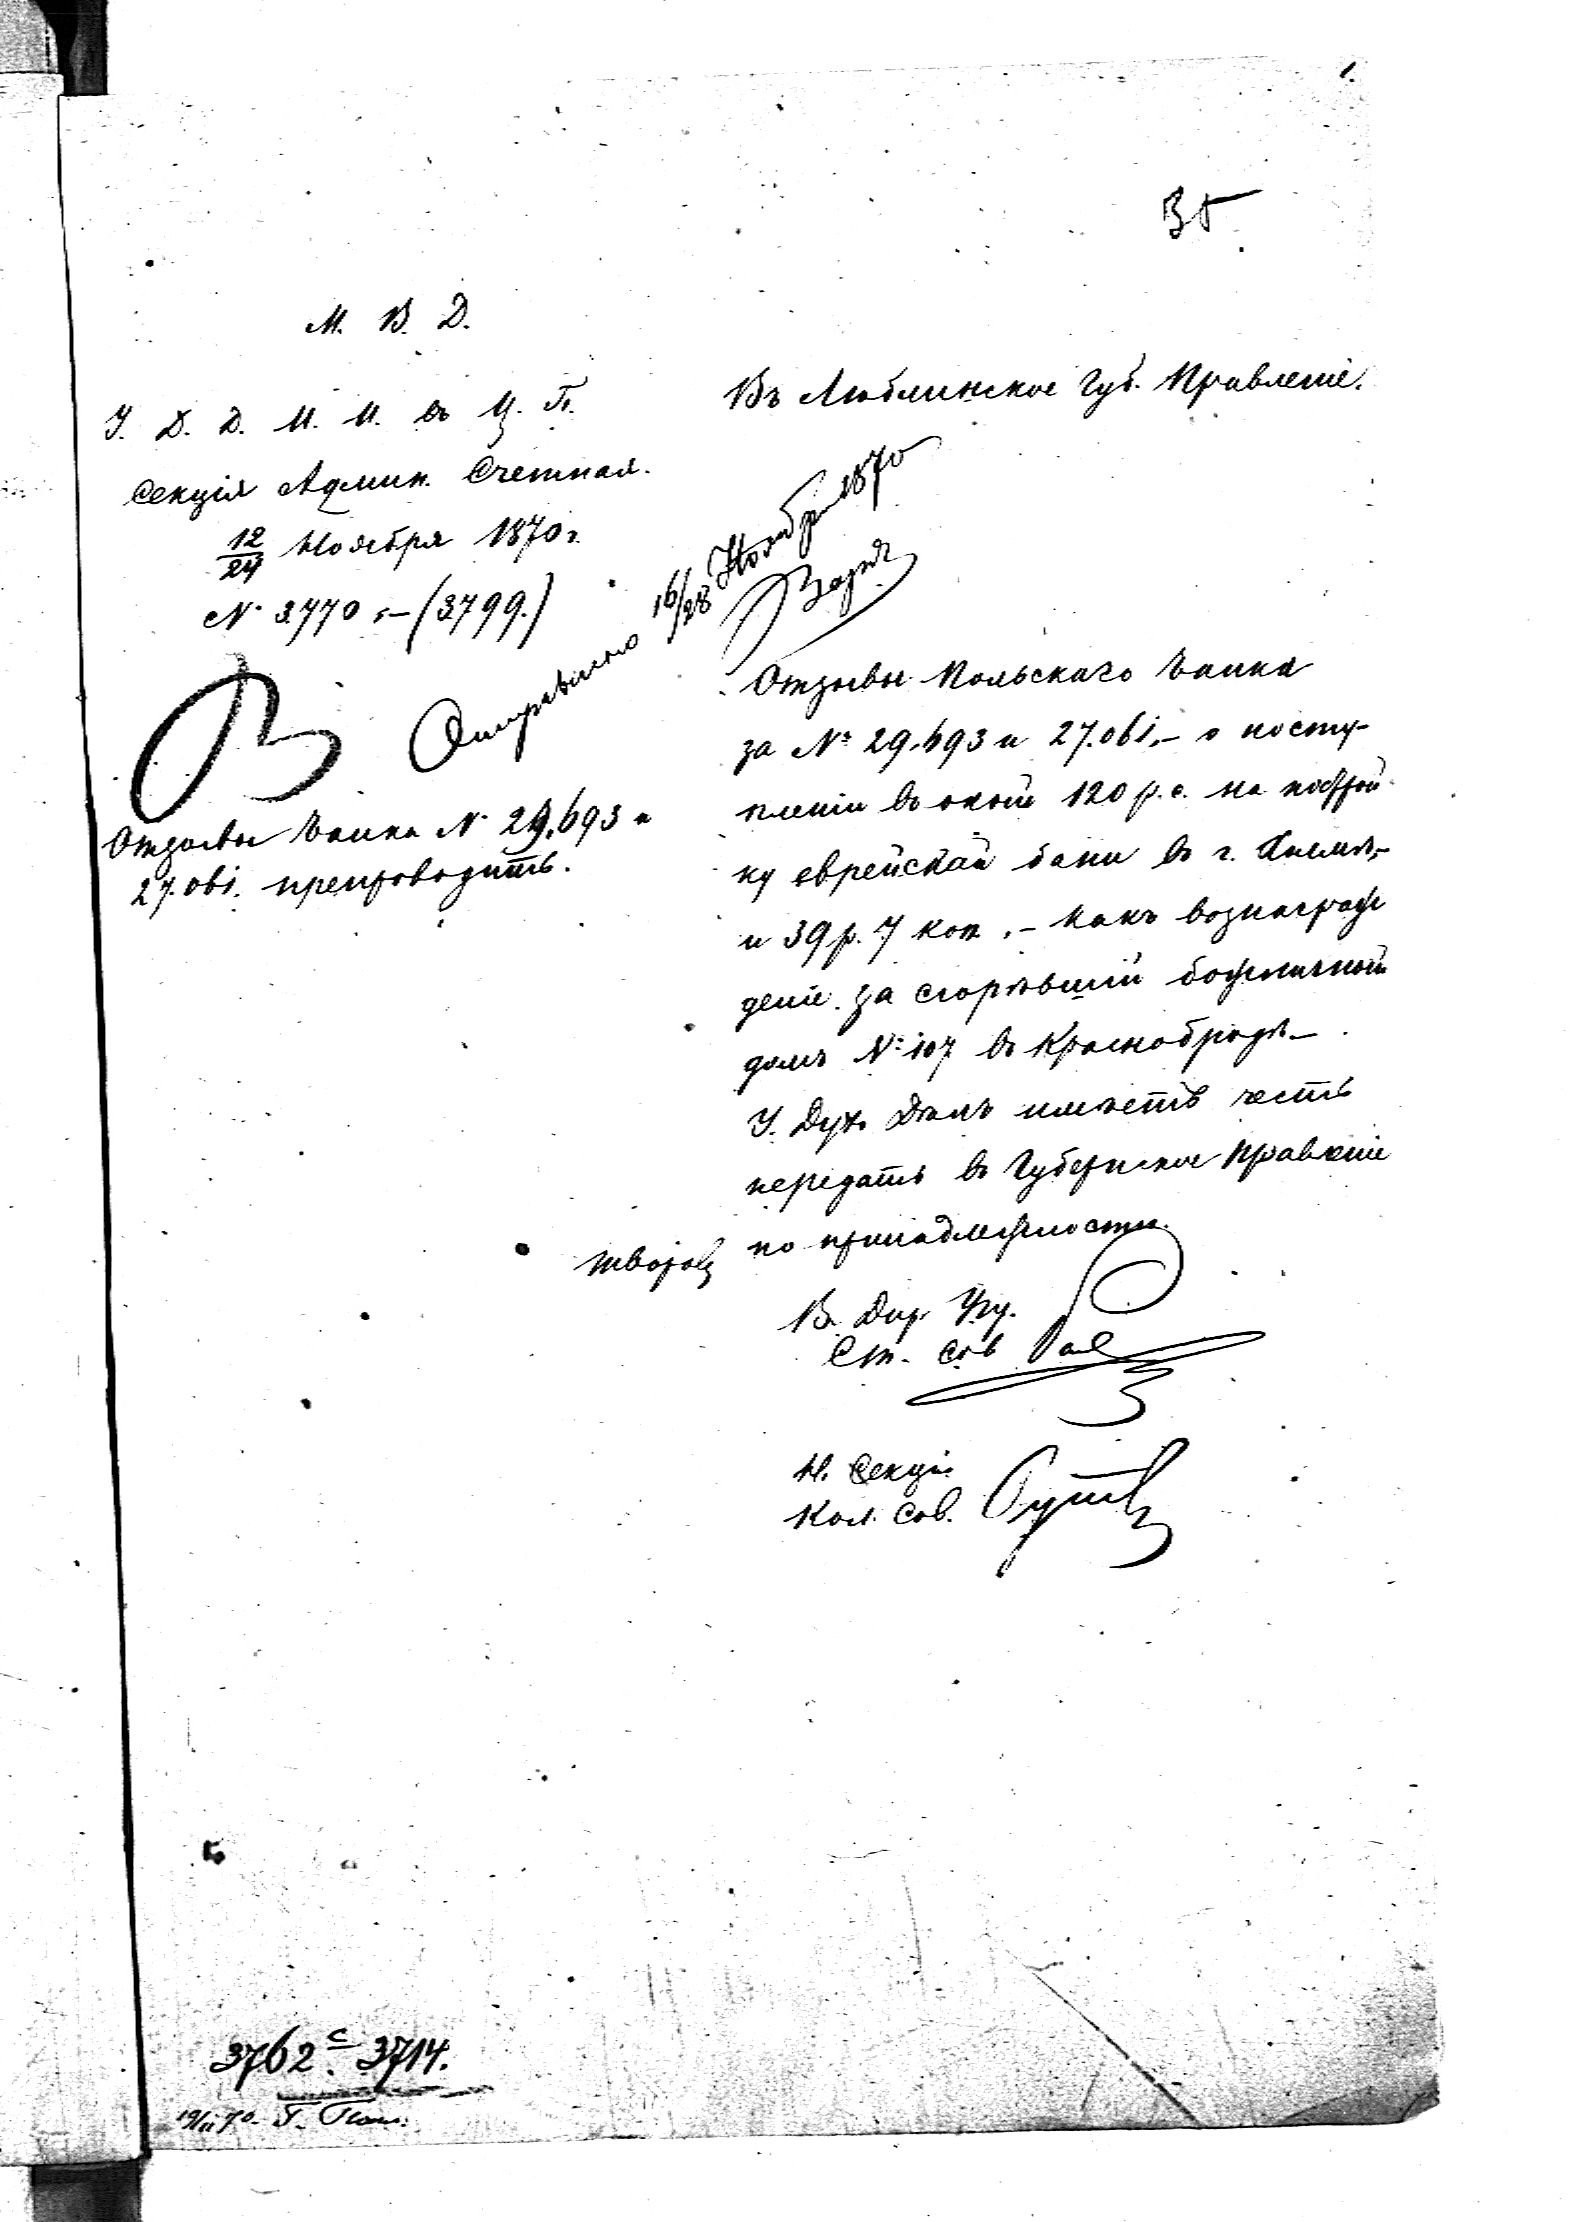 1.
М. В. Д.
У. Д. Д. И. И. въ Ц. П.
Секція Админ. Счетная.
12/24 Ноября 1870 г.
№ 3770.–(3799.)
Отправлено 16/28 Ноября 1870
Отзывы Банка № 29,693 и
27.061. препроводить.
Въ Люблинское Губ. Правленіе.
Отзывы Польскаго Банка
за № 29,693 и 27.061.– о посту-
пленіи въ оный 120 р. с. на построй-
ку еврейской бани въ г. Холмѣ,–
и 39 р. 7 коп.– какъ вознаграж
деніе за сгорѣвшій божничной
домъ № 107 въ Краснобродѣ–
У. Дух. Дѣлъ имѣетъ честь
передать въ Губернское Правленіе
по принадлежности.
В. Дир. Упр.
Ст. Сов
Н. Секціи
Кол. Сов.
3762 с 3714.
19/11 70.